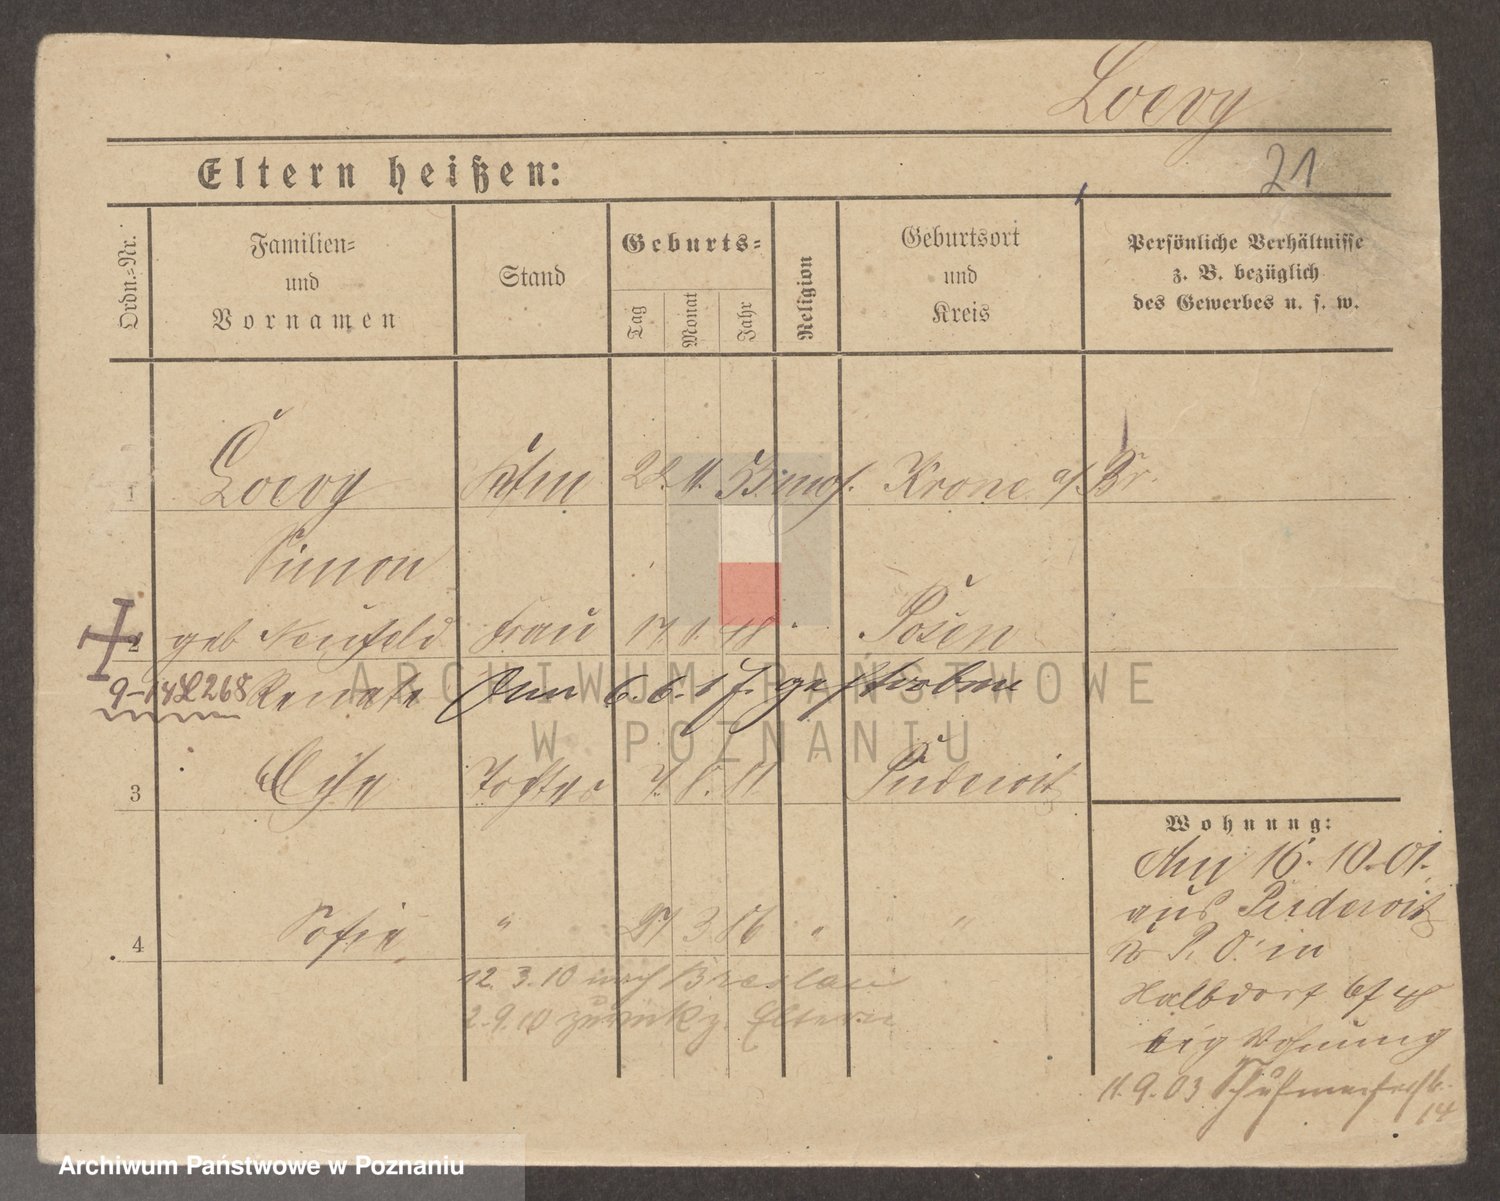 Loevy
21
Eltern heißen:
Ordn.-Nr.
Familien-
und
Vornamen
Stand
Geburts-
Tag
Monat
Jahr
Religion
Geburtsort
und
Kreis
Persönliche Verhältnisse
z. B. bezüglich
des Gewerbes u. s. w.
1 Loevy 22. 11. mos. Krone a/Br.
Simon
2 geb Neufeld Frau 17. Posen
Am 6. 6. 17. gestorben
3 Tochter Pudewitz
4 Sofie " 27 3 86 " "
12. 3. 10 nach Breslau
2. 9. 10 zurück z. Eltern
Wohnung:
Am 16. 10. 01.
aus Pudewitz
P. O. in
Halbdorf
eig Wohnung
11. 9. 03
14
ARCHIWUM PAŃSTWOWE
W POZNANIU
Archiwum Państwowe w Poznaniu